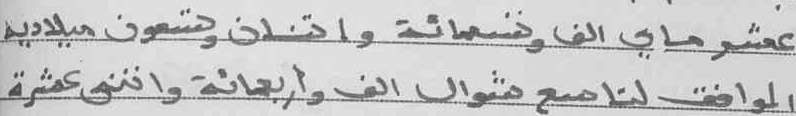 عشر ماي الف وتسعمائة واثنان وتسعون ميلادية
الموافق لتاسع شوال الف وأربعمائة واثنى عشرة